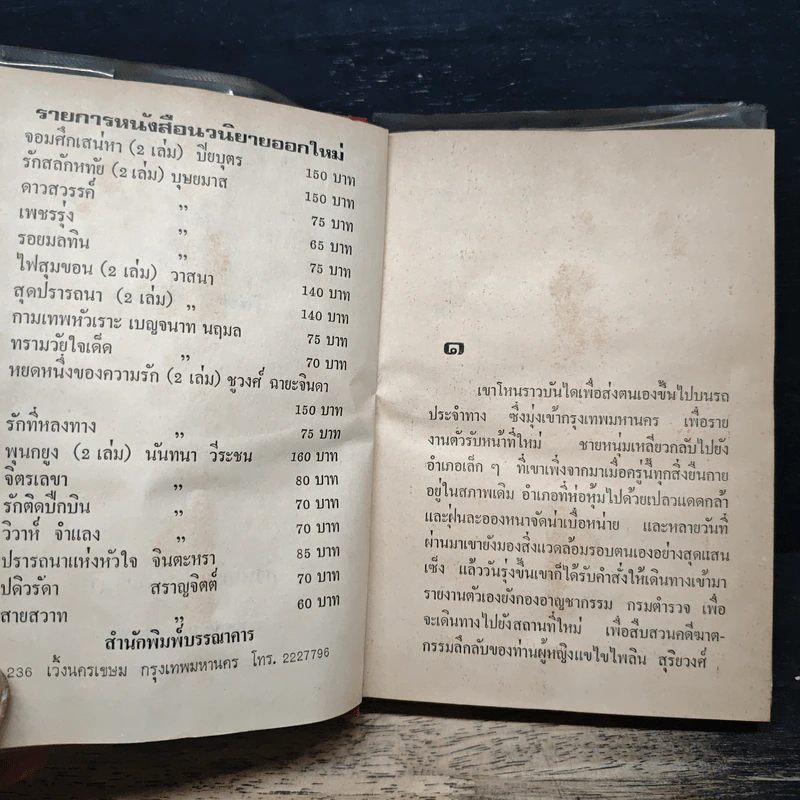 รายการหนังสือนวนิยายออกใหม่
จอมศึกเสน่หา (2 เล่ม) บียบุตร 150 บาท
รักสลักหทัย (2 เล่ม) บุษยมาส 150 บาท
ดาวสวรรค์ ” 75 บาท
เพชรรุ่ง ” 65 บาท
รอยมลทิน ” 75 บาท
ไฟสุมขอน (2 เล่ม) วาสนา 140 บาท
สุดปรารถนา (2 เล่ม) ” 140 บาท
กามเทพหัวเราะ เบญจนาท นฤมล 75 บาท
ทรามวัยใจเด็ด ” 70 บาท
หยดหนึ่งของความรัก (2 เล่ม) ชูวงศ์ ฉายะจินดา
150 บาท
รักที่หลงทาง ” 75 บาท
พุนกยูง (2 เล่ม) นันทนา วีระชน 160 บาท
จิตรเลขา ” 80 บาท
รักติดปีกบิน ” 70 บาท
วิวาห์ จำแลง ” 70 บาท
ปรารถนาแห่งหัวใจ จินตะหรา 85 บาท
ปดิวรัดา สราญจิตต์ 70 บาท
สายสวาท ” 60 บาท
สำนักพิมพ์บรรณาคาร
236 เวิ้งนครเขษม กรุงเทพมหานคร โทร. 2227796
๑
เขาโหนราวบันไดเพื่อส่งตนเองขึ้นไปบนรถ
ประจำทาง ซึ่งมุ่งเข้ากรุงเทพมหานคร เพื่อราย
งานตัวรับหน้าที่ใหม่ ชายหนุ่มเหลียวกลับไปยัง
อำเภอเล็ก ๆ ที่เขาเพิ่งจากมาเมื่อครู่นี้ทุกสิ่งยืนกาย
อยู่ในสภาพเดิม อำเภอที่ห่อหุ้มไปด้วยเปลวแดดกล้า
และฝุ่นละอองหนาจัดน่าเบื่อหน่าย และหลายวันที่
ผ่านมาเขายังมองสิ่งแวดล้อมรอบตนเองอย่างสุดแสน
เซ็ง แล้ววันรุ่งขึ้นเขาก็ได้รับคำสั่งให้เดินทางเข้ามา
รายงานตัวเองยังกองอาญชากรรม กรมตำรวจ เพื่อ
จะเดินทางไปยังสถานที่ใหม่ เพื่อสืบสวนคดีฆาต-
กรรมลึกลับของท่านผู้หญิงแขไขไพลิน สุริยวงศ์